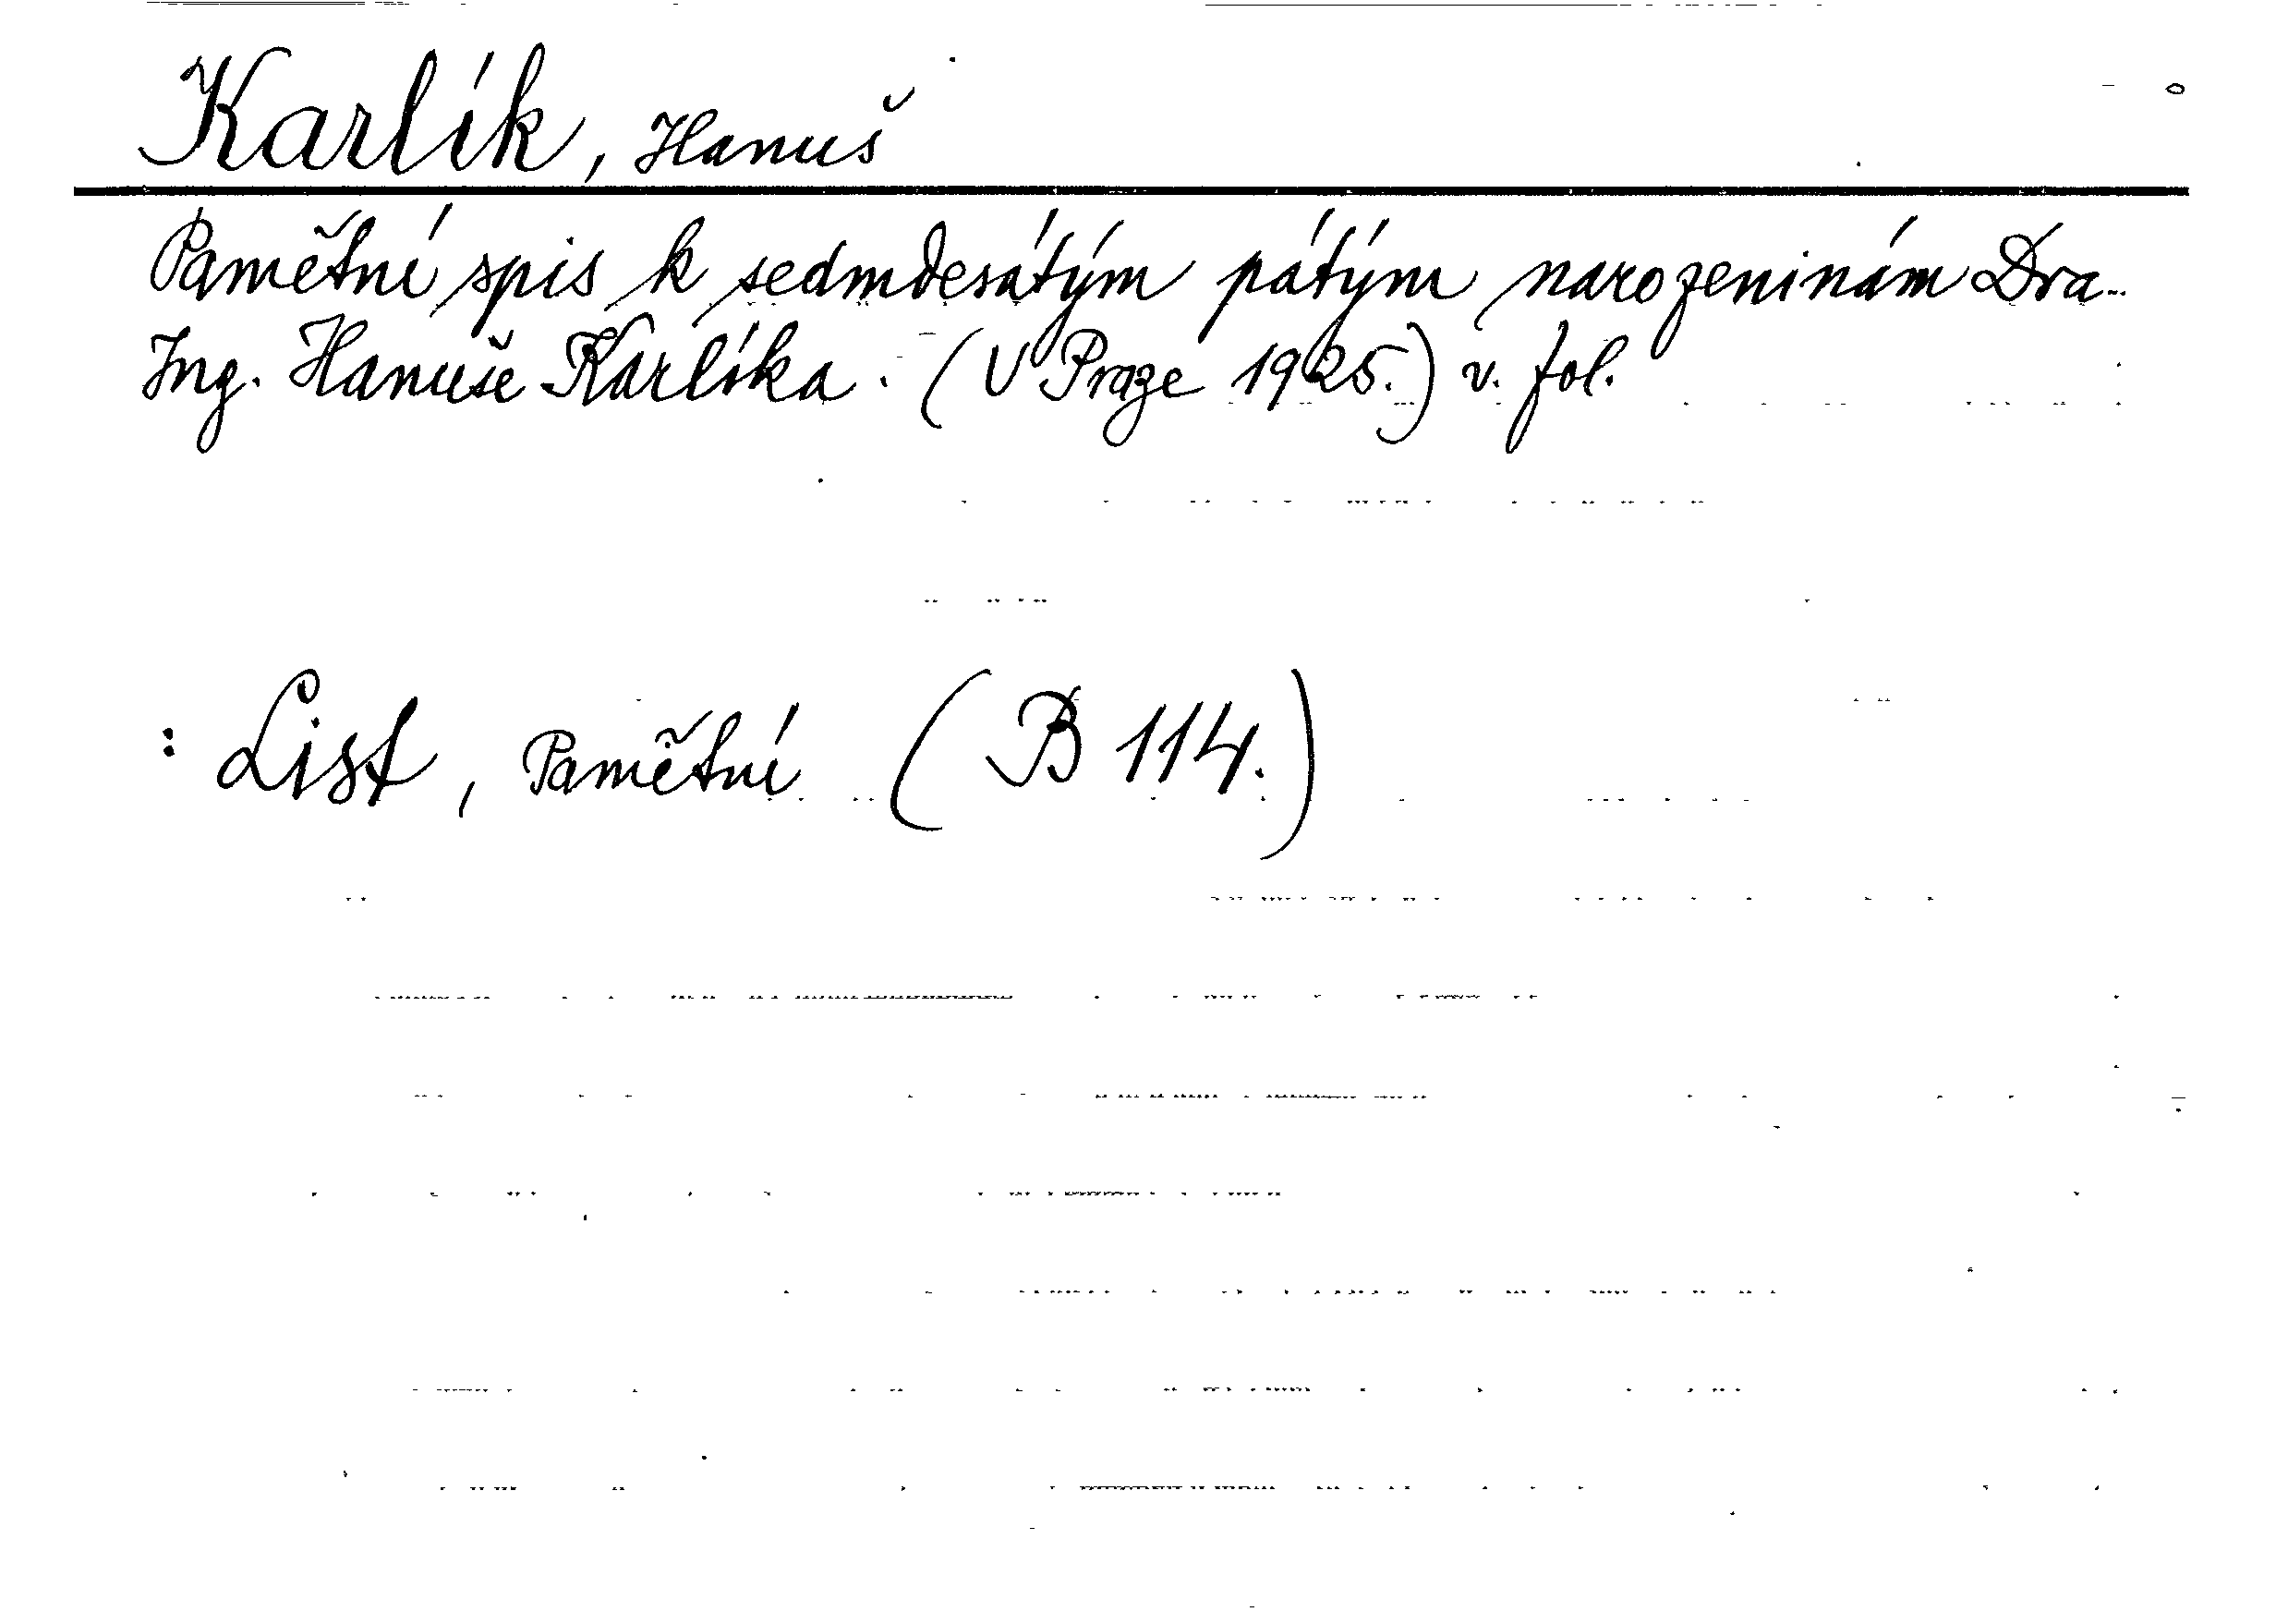 Karlík, Hanuš
Pamětní spis k sedmdesátým pátým narozeninám Dra.
Ing. Hanuše Karlíka. (V Praze 1925.) v. fol.
: List, Pamětní (B 114.)